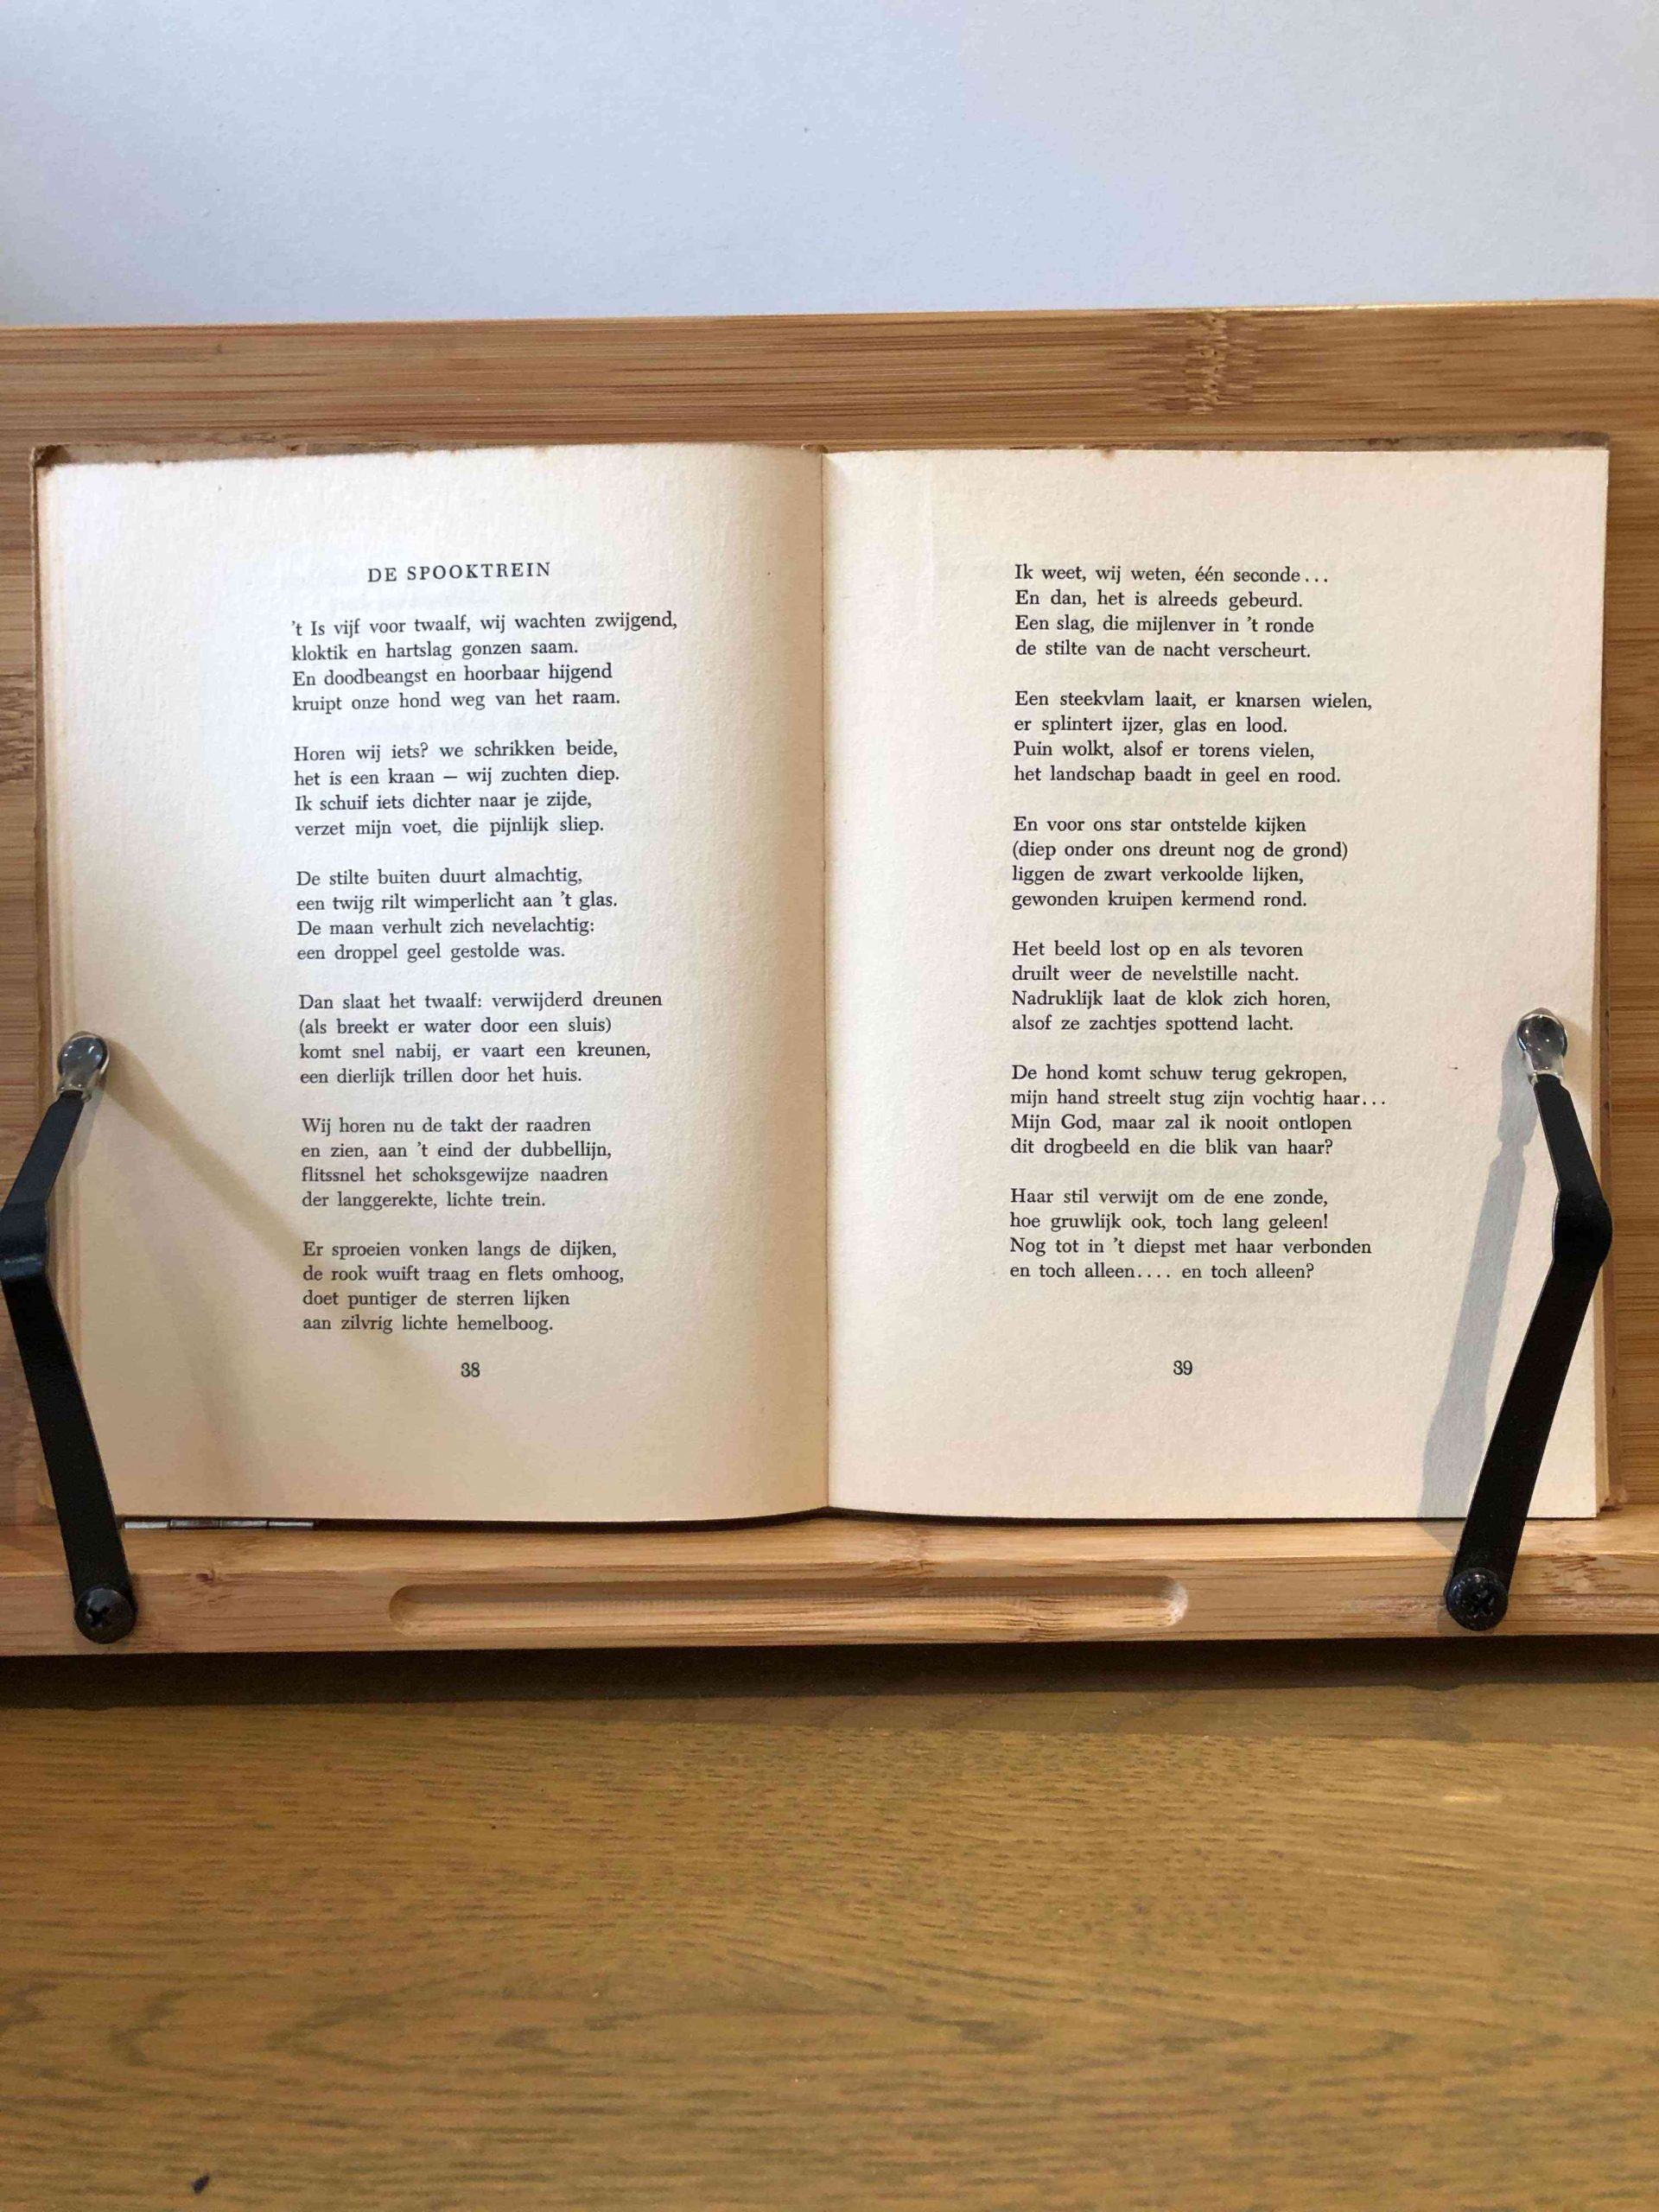 DE SPOOKTREIN
't Is vijf voor twaalf, wij wachten zwijgend,
kloktik en hartslag gonzen saam.
En doodbeangst en hoorbaar hijgend
kruipt onze hond weg van het raam.
Horen wij iets? we schrikken beide,
het is een kraan — wij zuchten diep.
Ik schuif iets dichter naar je zijde,
verzet mijn voet, die pijnlijk sliep.
De stilte buiten duurt almachtig,
een twijg rilt wimperlicht aan 't glas.
De maan verhult zich nevelachtig:
een droppel geel gestolde was.
Dan slaat het twaalf: verwijderd dreunen
(als breekt er water door een sluis)
komt snel nabij, er vaart een kreunen,
een dierlijk trillen door het huis.
Wij horen nu de takt der raadren
en zien, aan 't eind der dubbellijn,
flitssnel het schoksgewijze naadren
der langgerekte, lichte trein.
Er sproeien vonken langs de dijken,
de rook wuift traag en flets omhoog,
doet puntiger de sterren lijken
aan zilvrig lichte hemelboog.
38
Ik weet, wij weten, één seconde...
En dan, het is alreeds gebeurd.
Een slag, die mijlenver in 't ronde
de stilte van de nacht verscheurt.
Een steekvlam laait, er knarsen wielen,
er splintert ijzer, glas en lood.
Puin wolkt, alsof er torens vielen,
het landschap baadt in geel en rood.
En voor ons star ontstelde kijken
(diep onder ons dreunt nog de grond)
liggen de zwart verkoolde lijken,
gewonden kruipen kermend rond.
Het beeld lost op en als tevoren
druilt weer de nevelstille nacht.
Nadruklijk laat de klok zich horen,
alsof ze zachtjes spottend lacht.
De hond komt schuw terug gekropen,
mijn hand streelt stug zijn vochtig haar...
Mijn God, maar zal ik nooit ontlopen
dit drogbeeld en die blik van haar?
Haar stil verwijt om de ene zonde,
hoe gruwlijk ook, toch lang geleen!
Nog tot in 't diepst met haar verbonden
en toch alleen.... en toch alleen?
39